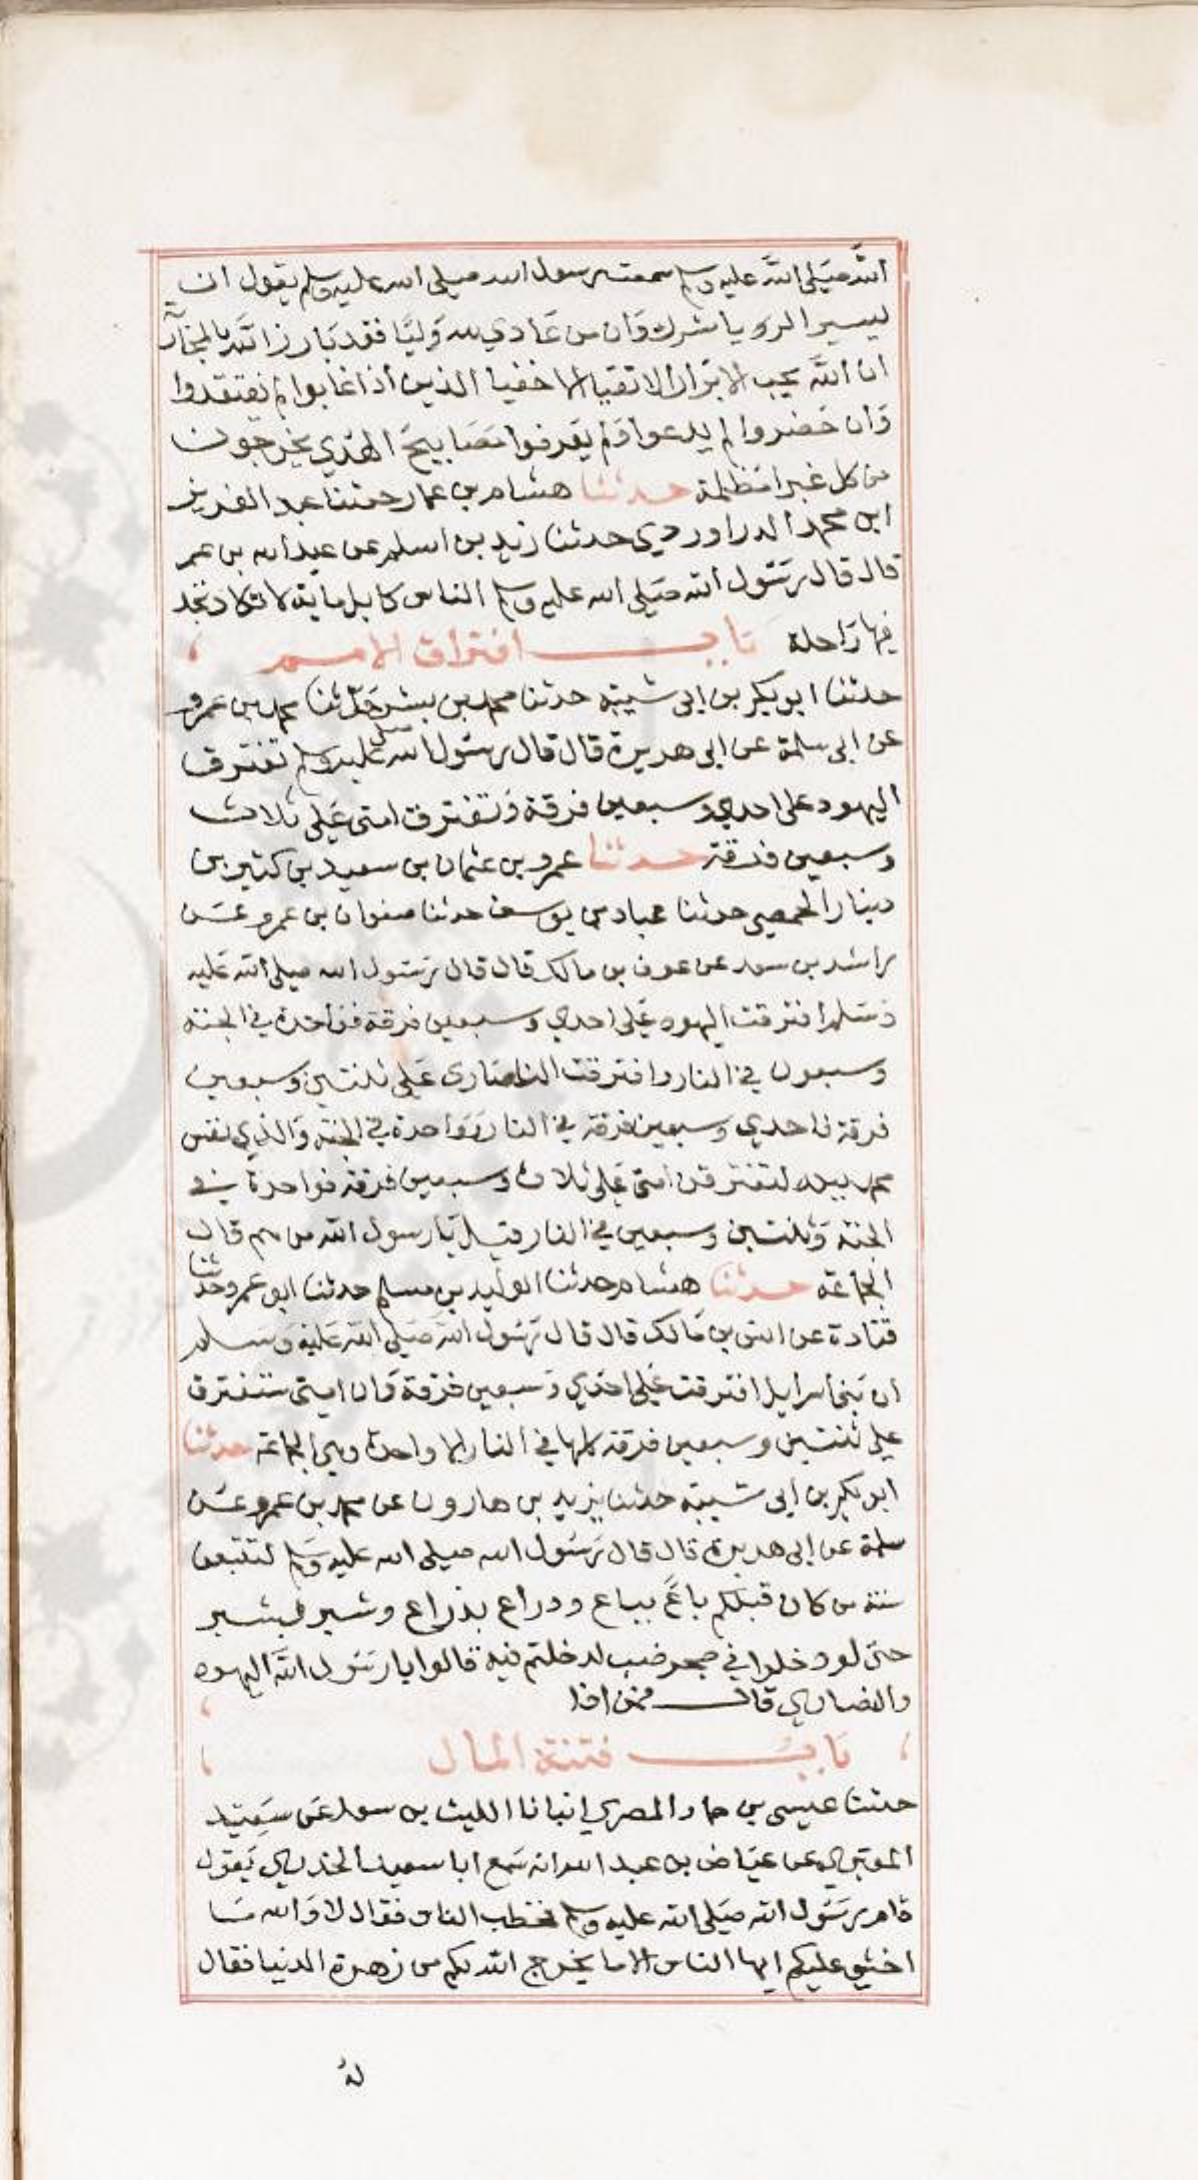 الله صَلى الله عليه وسلم سمعت رسول الله صلى الله عليه وسلم يقول ان
ليسير الرويا شرك وَان من عَادي لله وَليَّا فقد بَارز الله بالمحَاربة
ان الله يحب الابرَار الاتقيا الاخفيا الذين اذا غابوا لم يفتقدوا
وَان حَضروا لم يدعوا وَلم يعَرفوا مصَابيحَ الهدَي يخرجوُن
من كل غبرا مظلمة حدثنا هشام بن عمار حدثنا عبد العزيز
ابن محمد الدراوردي حدثنا زيد بن اسلم عن عبد الله بن عمر
قال قال رسَول الله صَلي الله عليه وسلم الناس كابل ماية لا تكاد تجد
فيها رَاحلة بَاب افتراق الامم
حدثنا ابو بكر بن ابي شيبة حدثنا محمد بن بشر حَدثنا محمد بن عمرو
عن ابي سلمة عن ابي هريرة قال قال رسَول الله صلى عليه وسلم تفترق
اليهود على احدي وسبعين فرقة وَتفترق امتى عَلى ثلاث
وسبعين فرقة حدثنا عمرو بن عثمان بن سعيد بن كثير بن
دينار الحمصي حدثنا عباد بن يوسف حدثنا صفوان بن عمرو عن
راشد بن سعد عن عوف بن مالك قال قال رَسَول الله صلى الله عَليه
وسَلم افترقت اليهود عَلى احدي وسبعين فرقة فواحدة في الجنة
وسبعون في النار وافترقت الناصَارى عَلى ثلنتين وسبعين
فرقة فاحدي وَسبعين فرقة في النار وَوَاحدة في الجنة وَالذي نفس
محمد بيده لتفترقن امتى عَلى ثلاث وَسبعين فرقة فواحدة في
الجنة وَثلنتين وسبعين في النار قيل يَا رسول الله من هم قال
الجمَاعة حدثنا هشام حدثنا الوليد بن مسلم حدثنا ابو عمرو حدثنا
قتادة عن انس بن مَالك قال قال رَسَول الله صَلى الله عَليه وَسلم
ان بَنى اسرايل افترقت عَلى احَدي وَسبعين فرَقة وَان امتى ستفترق
على ثنتين وسبعين فرقة كلها في النار الا واحدة وهي الجماعة حدثنا
ابو بكر بن ابى شيبة حدثنا يزيد بن هارون عن محمد بن عمرو عَن
سلمة عن ابى هريرة قال قال رَسَول الله صلى الله عليه وسَلم لتتبعن
سنة من كان قبلكم باعَّ بباع وذراع بذراع وشبر فبشبر
حتى لو دخلوا في جحر ضب لدخلتم فيه قالوا يا رسَول الله اليهود
والنصاري قال فمن اذا
بَاب فتنة المال
حدثنا عيسى بن حماد المصري انبانا الليث بن سعد عَن سَعيَد
المقبري عن عيَاض بن عبد الله انه سَمع ابا سعيد الخدري يَقول
قام رَسَول الله صَلى الله عليه وسلم فخطب الناس فقال لا وَالله مَا
اخشي عليكم ايها الناس الا ما يخرج الله لكم من زهرة الدنيا فقال